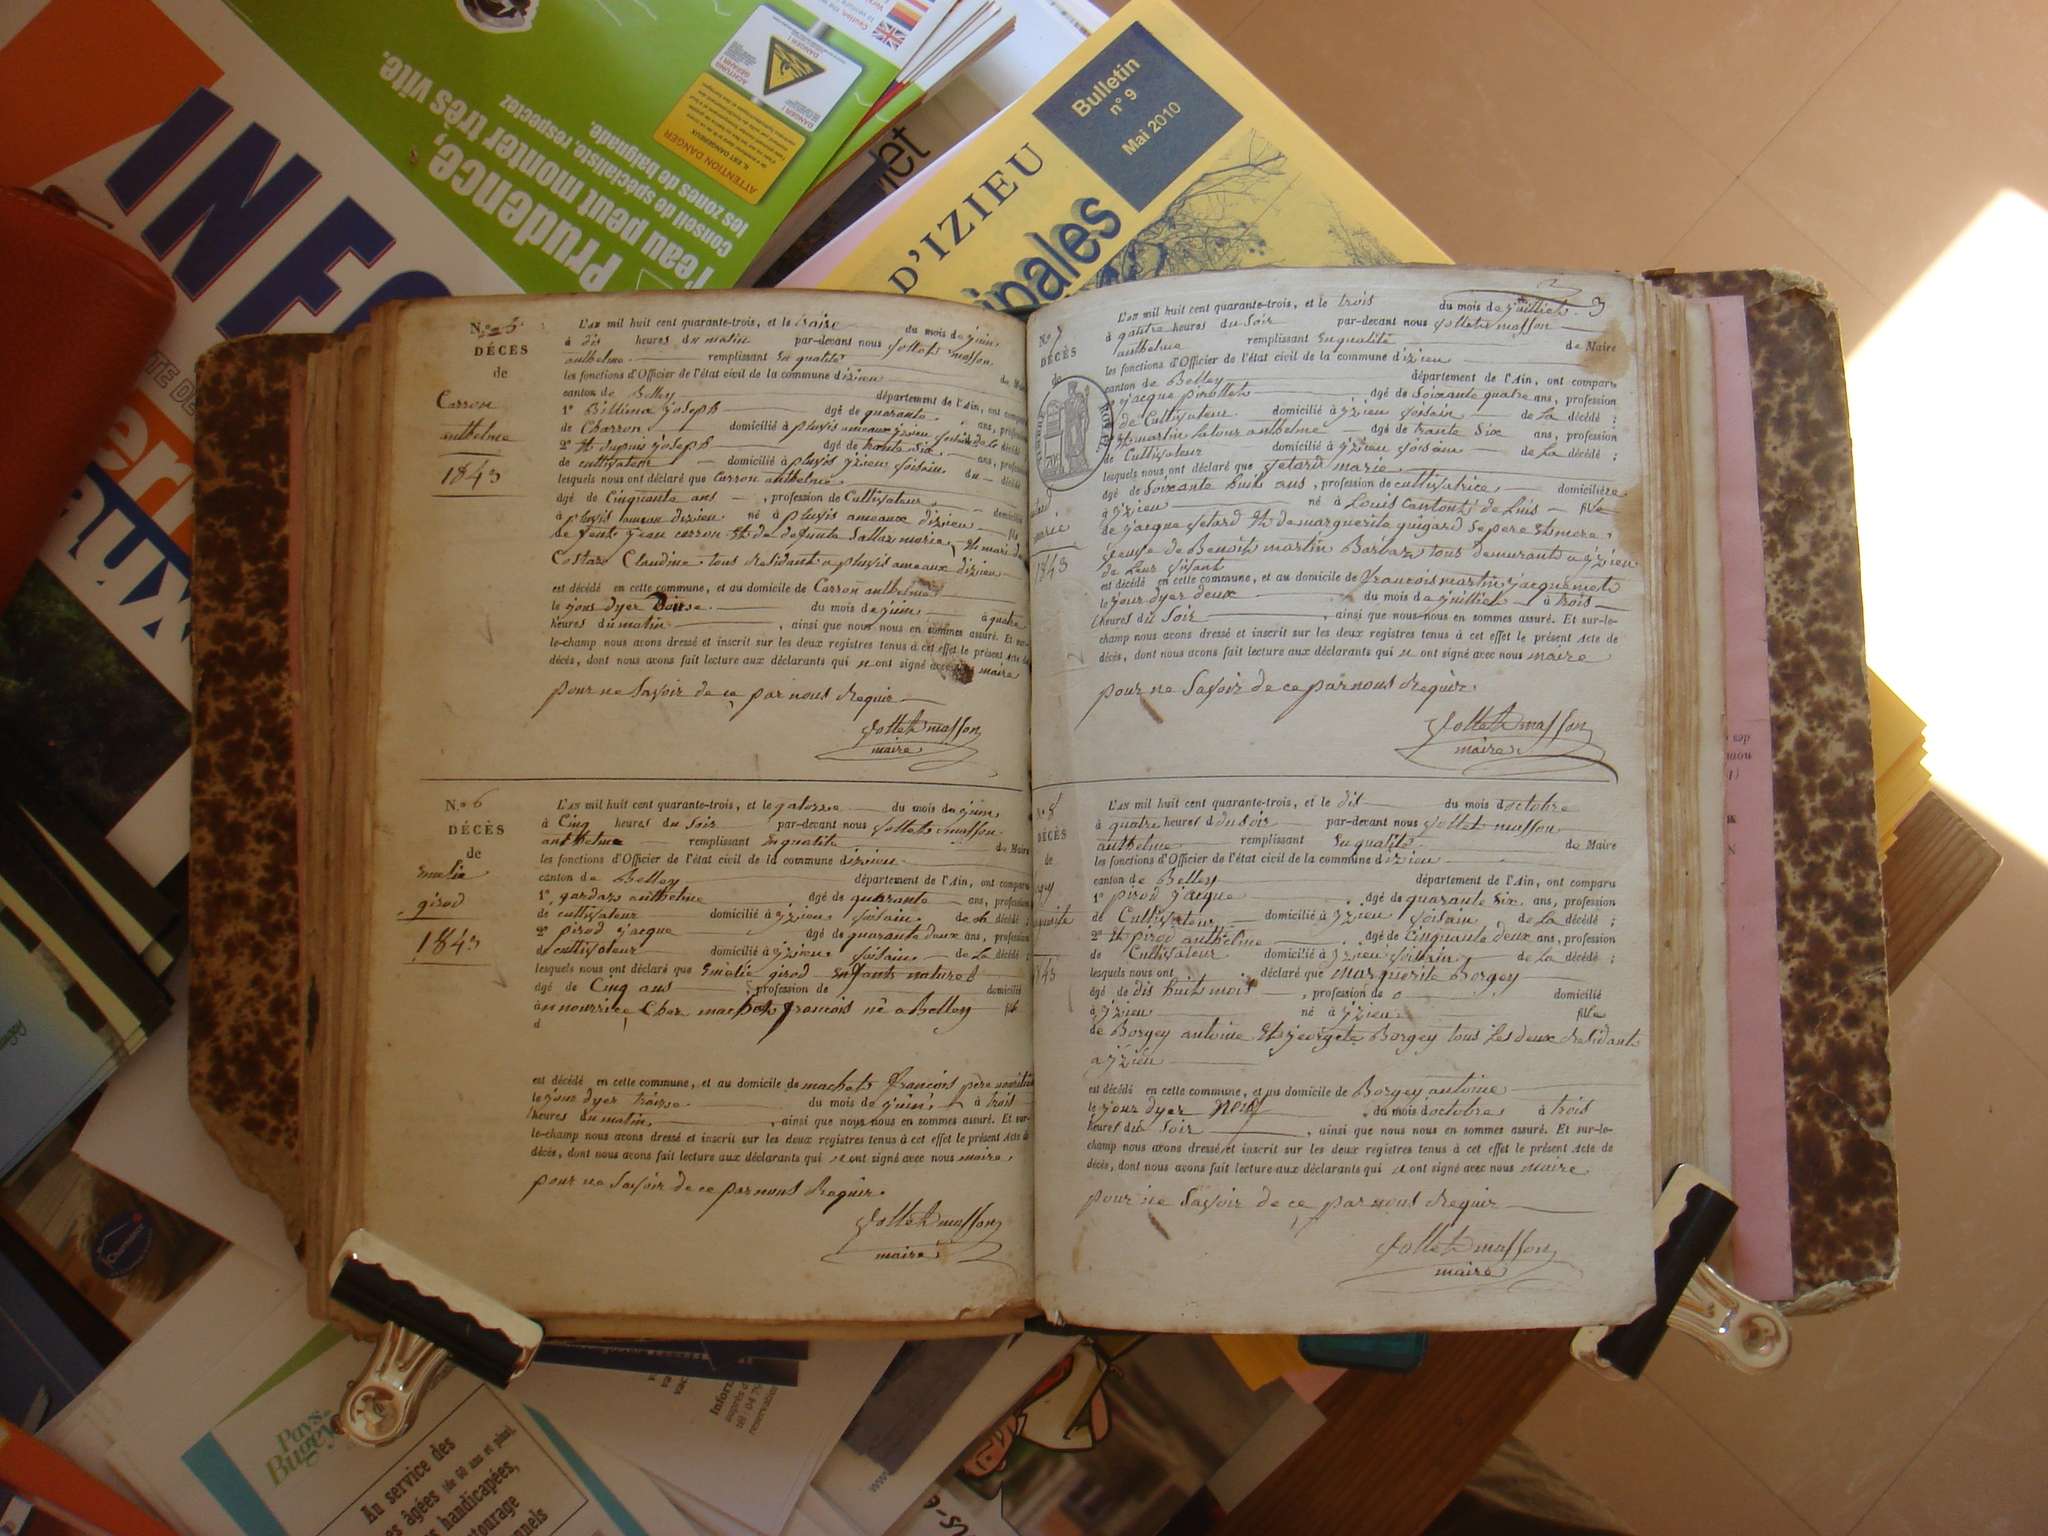 INFO
Prudence,
l'eau peut monter très vite.
Conseil de spécialiste, respectez
les zones de baignade.
ATTENTION DANGER
IL EST DANGEREUX
ACHTUNG GEFAHR !
DANGER !
Bulletin
n° 9
Mai 2010
D'IZIEU
N.º 5
DÉCÈS
de
Carron
anthelme
1843
L'AN mil huit cent quarante-trois, et le traize du mois de juin
à dis heures du matin par-devant nous Jollet masson
anthelme remplissant en qualité de Maire
les fonctions d'Officier de l'état civil de la commune d'izieu
canton de Belley département de l'Ain, ont comparu
1º Billiena joseph âgé de quarante ans, profession
de Charron domicilié à
2º Et dupuis joseph âgé de trante six ans, profession
de cultivateur domicilié à pluvis yzieu voisin du décédé
lesquels nous ont déclaré que Carron anthelme
âgé de Cinquante ans, profession de Cultivateur domicilié
à pluvis ameau dizieu né à pluvis ameaux dizieu fils
de feut jean carron Et de defunte Sallaz marie Et mari de
Costaz Claudine tous residant a pluvis ameaux dizieu
est décédé en cette commune, et au domicile de Carron anthelme
le jour dyer du mois de juin à quatre
heures du matin, ainsi que nous nous en sommes assuré. Et sur-
le-champ nous avons dressé et inscrit sur les deux registres tenus à cet effet le présent Acte de
décès, dont nous avons fait lecture aux déclarants qui n ont signé avec nous maire
pour ne Savoir de ce par nous Requir
Jollet masson
maire
N.º 6
DÉCÈS
de
emelie
girod
1843
L'AN mil huit cent quarante-trois, et le qatorse du mois de juin
à Cinq heures du Soir par-devant nous Jollet masson
anthelme remplissant en qualité de Maire
les fonctions d'Officier de l'état civil de la commune d'izieu
canton de Belley département de l'Ain, ont comparu
1º gardaz anthelme âgé de quarante ans, profession
de cultivateur domicilié à yzieu voisain de décédé ;
2º pirod jacque âgé de quarante deux ans, profession
de cultivateur domicilié à yzieu voisain de La décédé ;
lesquels nous ont déclaré que Emelie girod enfant naturel
âgé de Cinq ans, profession de domicilié
à nourrice Chez machet francois né a Belley
d
est décédé en cette commune, et au domicile de machet francois père
le jour dyer traize du mois de juin à trois
heures du matin, ainsi que nous nous en sommes assuré. Et sur-
le-champ nous avons dressé et inscrit sur les deux registres tenus à cet effet le présent Acte de
décès, dont nous avons fait lecture aux déclarants qui n ont signé avec nous maire.
pour ne Savoir de ce par nous Requir.
Jollet masson
maire
3
N.º 7
DÉCÈS
de
marie
1843
L'AN mil huit cent quarante-trois, et le trois du mois de juillet
à qautre heures du Soir par-devant nous Jollet masson
anthelme remplissant En qualité de Maire
les fonctions d'Officier de l'état civil de la commune d'izieu
canton de Belley département de l'Ain, ont comparu
1º jacque pirollet âgé de Soixante quatre ans, profession
de Cultivateur domicilié à yzieu voisain de La décédé ;
2º Et martin Latour anthelme âgé de trante Six ans, profession
de Cultivateur domicilié à yzieu voisain de La décédé ;
lesquels nous ont déclaré que Jetard marie
âgé de Soixante huit ans, profession de cultivatrice domicilière
à yzieu né à Louis Canton de Luis fille
de jacque Jetard Et de marguerite guigard Se pere Et mere,
veuve de Benoit martin Barbaz tous demurant a yzieu
de Leur vivant
est décédé en cette commune, et au domicile de francois martin jacquemet
le jour dyer deux du mois de juillet à trois
heures du Soir, ainsi que nous nous en sommes assuré. Et sur-le-
champ nous avons dressé et inscrit sur les deux registres tenus à cet effet le présent Acte de
décès, dont nous avons fait lecture aux déclarants qui n ont signé avec nous maire
pour ne Savoir de ce par nous Requir
Jollet masson
maire
N.º 8
DÉCÈS
de
1843
L'AN mil huit cent quarante-trois, et le dis du mois d'octobre
à quatre heures d du Soir par-devant nous Jollet masson
anthelme remplissant En qualité de Maire
les fonctions d'Officier de l'état civil de la commune d'izieu
canton de Belley département de l'Ain, ont comparu
1º pirod jacque âgé de quarante Six ans, profession
de Cultivateur domicilié à yzieu voisain de La décédé ;
2º Et pirod anthelme âgé de Cinquante deux ans, profession
de Cultivateur domicilié à yzieu voisain de La décédé ;
lesquels nous ont déclaré que Marguerite Borgey
âgé de dis huit mois, profession de o domicilié
à yzieu né à yzieu fille
de Borgey antoine Et Borgey tous Les deux Residant
a yzieu
est décédé en cette commune, et au domicile de Borgey antoine
le jour dyer neuf du mois d'octobre à trois
heures du Soir, ainsi que nous nous en sommes assuré. Et sur-le-
champ nous avons dressé et inscrit sur les deux registres tenus à cet effet le présent Acte de
décès, dont nous avons fait lecture aux déclarants qui n ont signé avec nous maire
pour ne Savoir de ce par nous Requir
Jollet masson
maire
Pays
Bugey
Au service des
âgées (de 60 ans et plus),
handicapées,